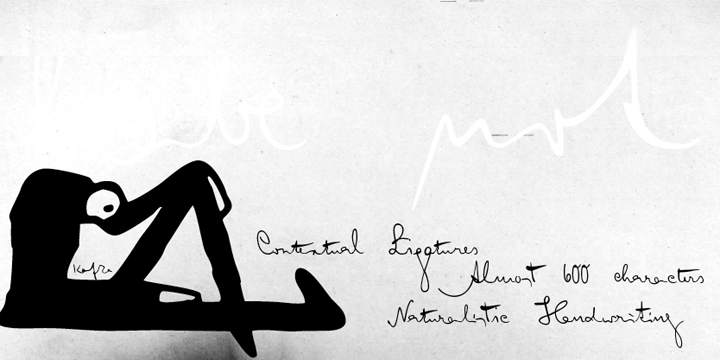 Maybe not
Contextual Ligatures
Kafka
Almost 600 characters
Naturalistic Handwriting